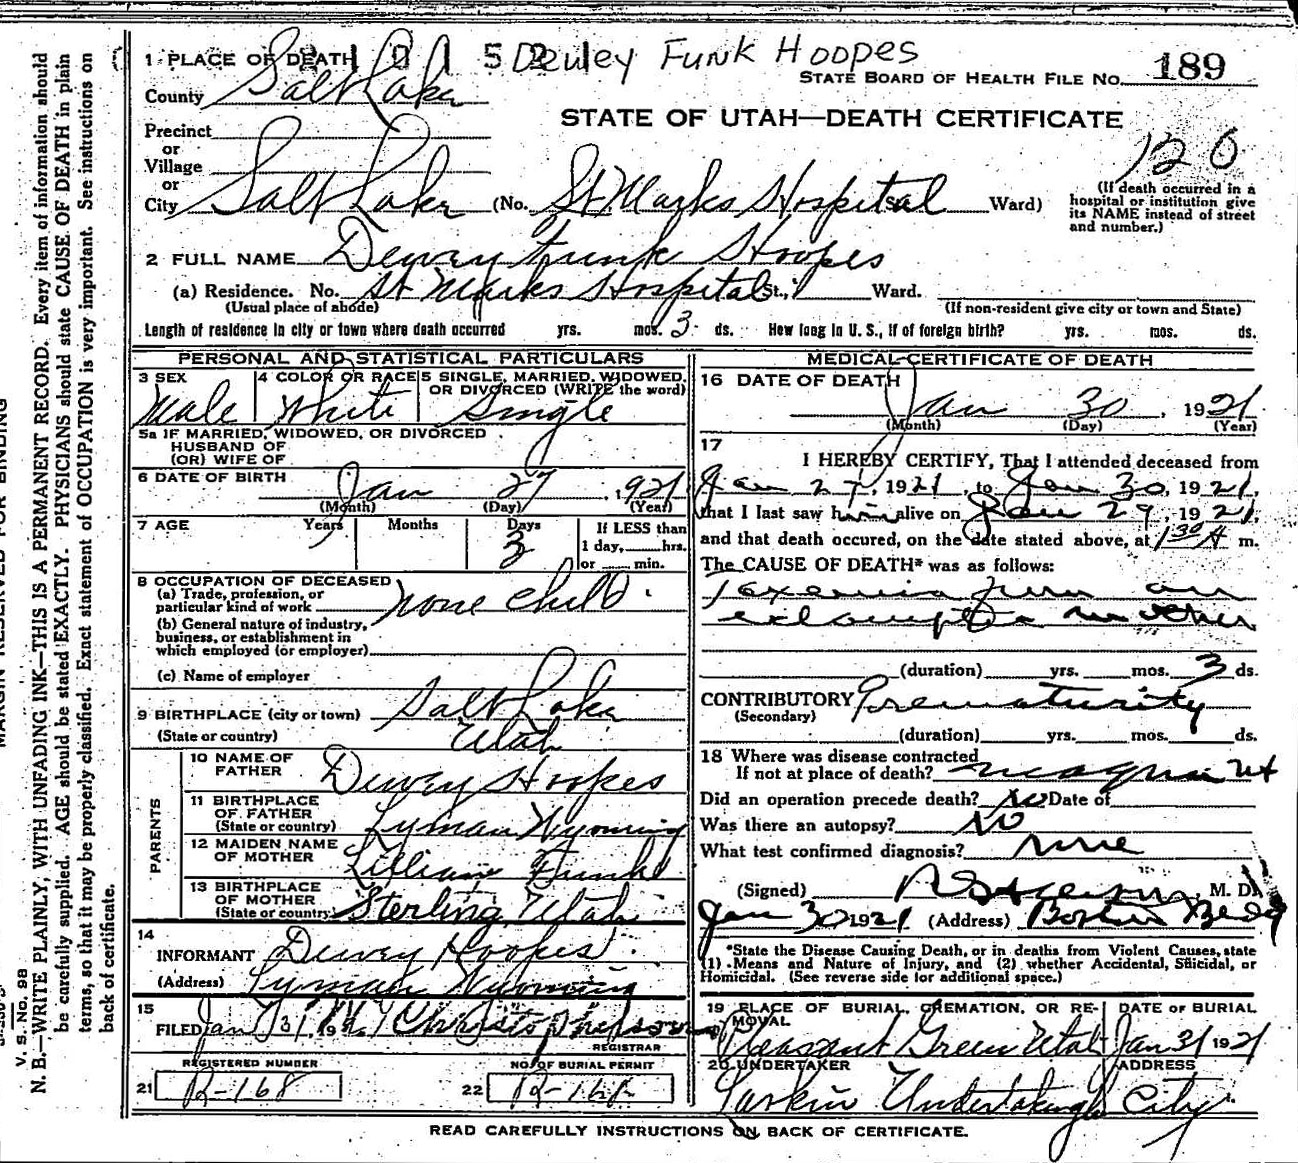 1 PLACE OF DEATH 2 1 0 1 5 2 Dewey Funk Hoopes
STATE BOARD OF HEALTH FILE NO. 189
County Salt Lake
STATE OF UTAH—DEATH CERTIFICATE
120
Precinct
or
Village
or
City Salt Lake (No. St Marks Hospital St. Ward)
(If death occurred in a hospital or institution give its NAME instead of street and number.)
2 FULL NAME Dewey Funk Hoopes
(a) Residence. No. St Marks Hospital St., Ward.
(Usual place of abode) (If non-resident give city or town and State)
Length of residence in city or town where death occurred yrs. mos. 3 ds. How long in U. S., if of foreign birth? yrs. mos. ds.
PERSONAL AND STATISTICAL PARTICULARS
3 SEX 4 COLOR OR RACE 5 SINGLE, MARRIED, WIDOWED, OR DIVORCED (WRITE the word)
Male White Single
5a IF MARRIED, WIDOWED, OR DIVORCED
HUSBAND OF
(OR) WIFE OF
6 DATE OF BIRTH Jan 27, 1921
(Month) (Day) (Year)
7 AGE Years Months Days If LESS than
3 1 day, hrs.
or min.
8 OCCUPATION OF DECEASED
(a) Trade, profession, or
particular kind of work none child
(b) General nature of industry,
business, or establishment in
which employed (or employer)
(c) Name of employer
9 BIRTHPLACE (city or town) Salt Lake
(State or country) Utah
PARENTS
10 NAME OF FATHER Dewey Hoopes
11 BIRTHPLACE OF FATHER (State or country) Lyman Wyoming
12 MAIDEN NAME OF MOTHER Lillian Funk
13 BIRTHPLACE OF MOTHER (State or country) Sterling Utah
14
INFORMANT Dewey Hoopes
(Address) Lyman Wyoming
15
FILED Jan 31, 19
REGISTRAR
REGISTERED NUMBER NO. OF BURIAL PERMIT
21 R-168 22 R-168
MEDICAL CERTIFICATE OF DEATH
16 DATE OF DEATH
Jan 30, 1921
(Month) (Day) (Year)
17
I HEREBY CERTIFY, That I attended deceased from
Jan 27, 1921, to Jan 30, 1921,
that I last saw him alive on Jan 29, 1921,
and that death occured, on the date stated above, at 1 30 A m.
The CAUSE OF DEATH* was as follows:
Toxemia from an
eclamptic mother
(duration) yrs. mos. 3 ds.
CONTRIBUTORY Prematurity
(Secondary)
(duration) yrs. mos. ds.
18 Where was disease contracted
If not at place of death?
Did an operation precede death? No Date of
Was there an autopsy? No
What test confirmed diagnosis? none
(Signed) M. D.
Jan 30 1921 (Address) Boston Bldg
*State the Disease Causing Death, or in deaths from Violent Causes, state
(1) Means and Nature of Injury, and (2) whether Accidental, Suicidal, or
Homicidal. (See reverse side for additional space.)
19 PLACE OF BURIAL, CREMATION, OR REMOVAL DATE OF BURIAL
Pleasant Green Utah Jan 31 1921
20 UNDERTAKER ADDRESS
Larkin Undertaking City
READ CAREFULLY INSTRUCTIONS ON BACK OF CERTIFICATE.
MARGIN RESERVED FOR BINDING
V. S. No. 98
N. B.—WRITE PLAINLY, WITH UNFADING INK—THIS IS A PERMANENT RECORD. Every item of information should
be carefully supplied. AGE should be stated EXACTLY. PHYSICIANS should state CAUSE OF DEATH in plain
terms, so that it may be properly classified. Exact statement of OCCUPATION is very important. See instructions on
back of certificate.